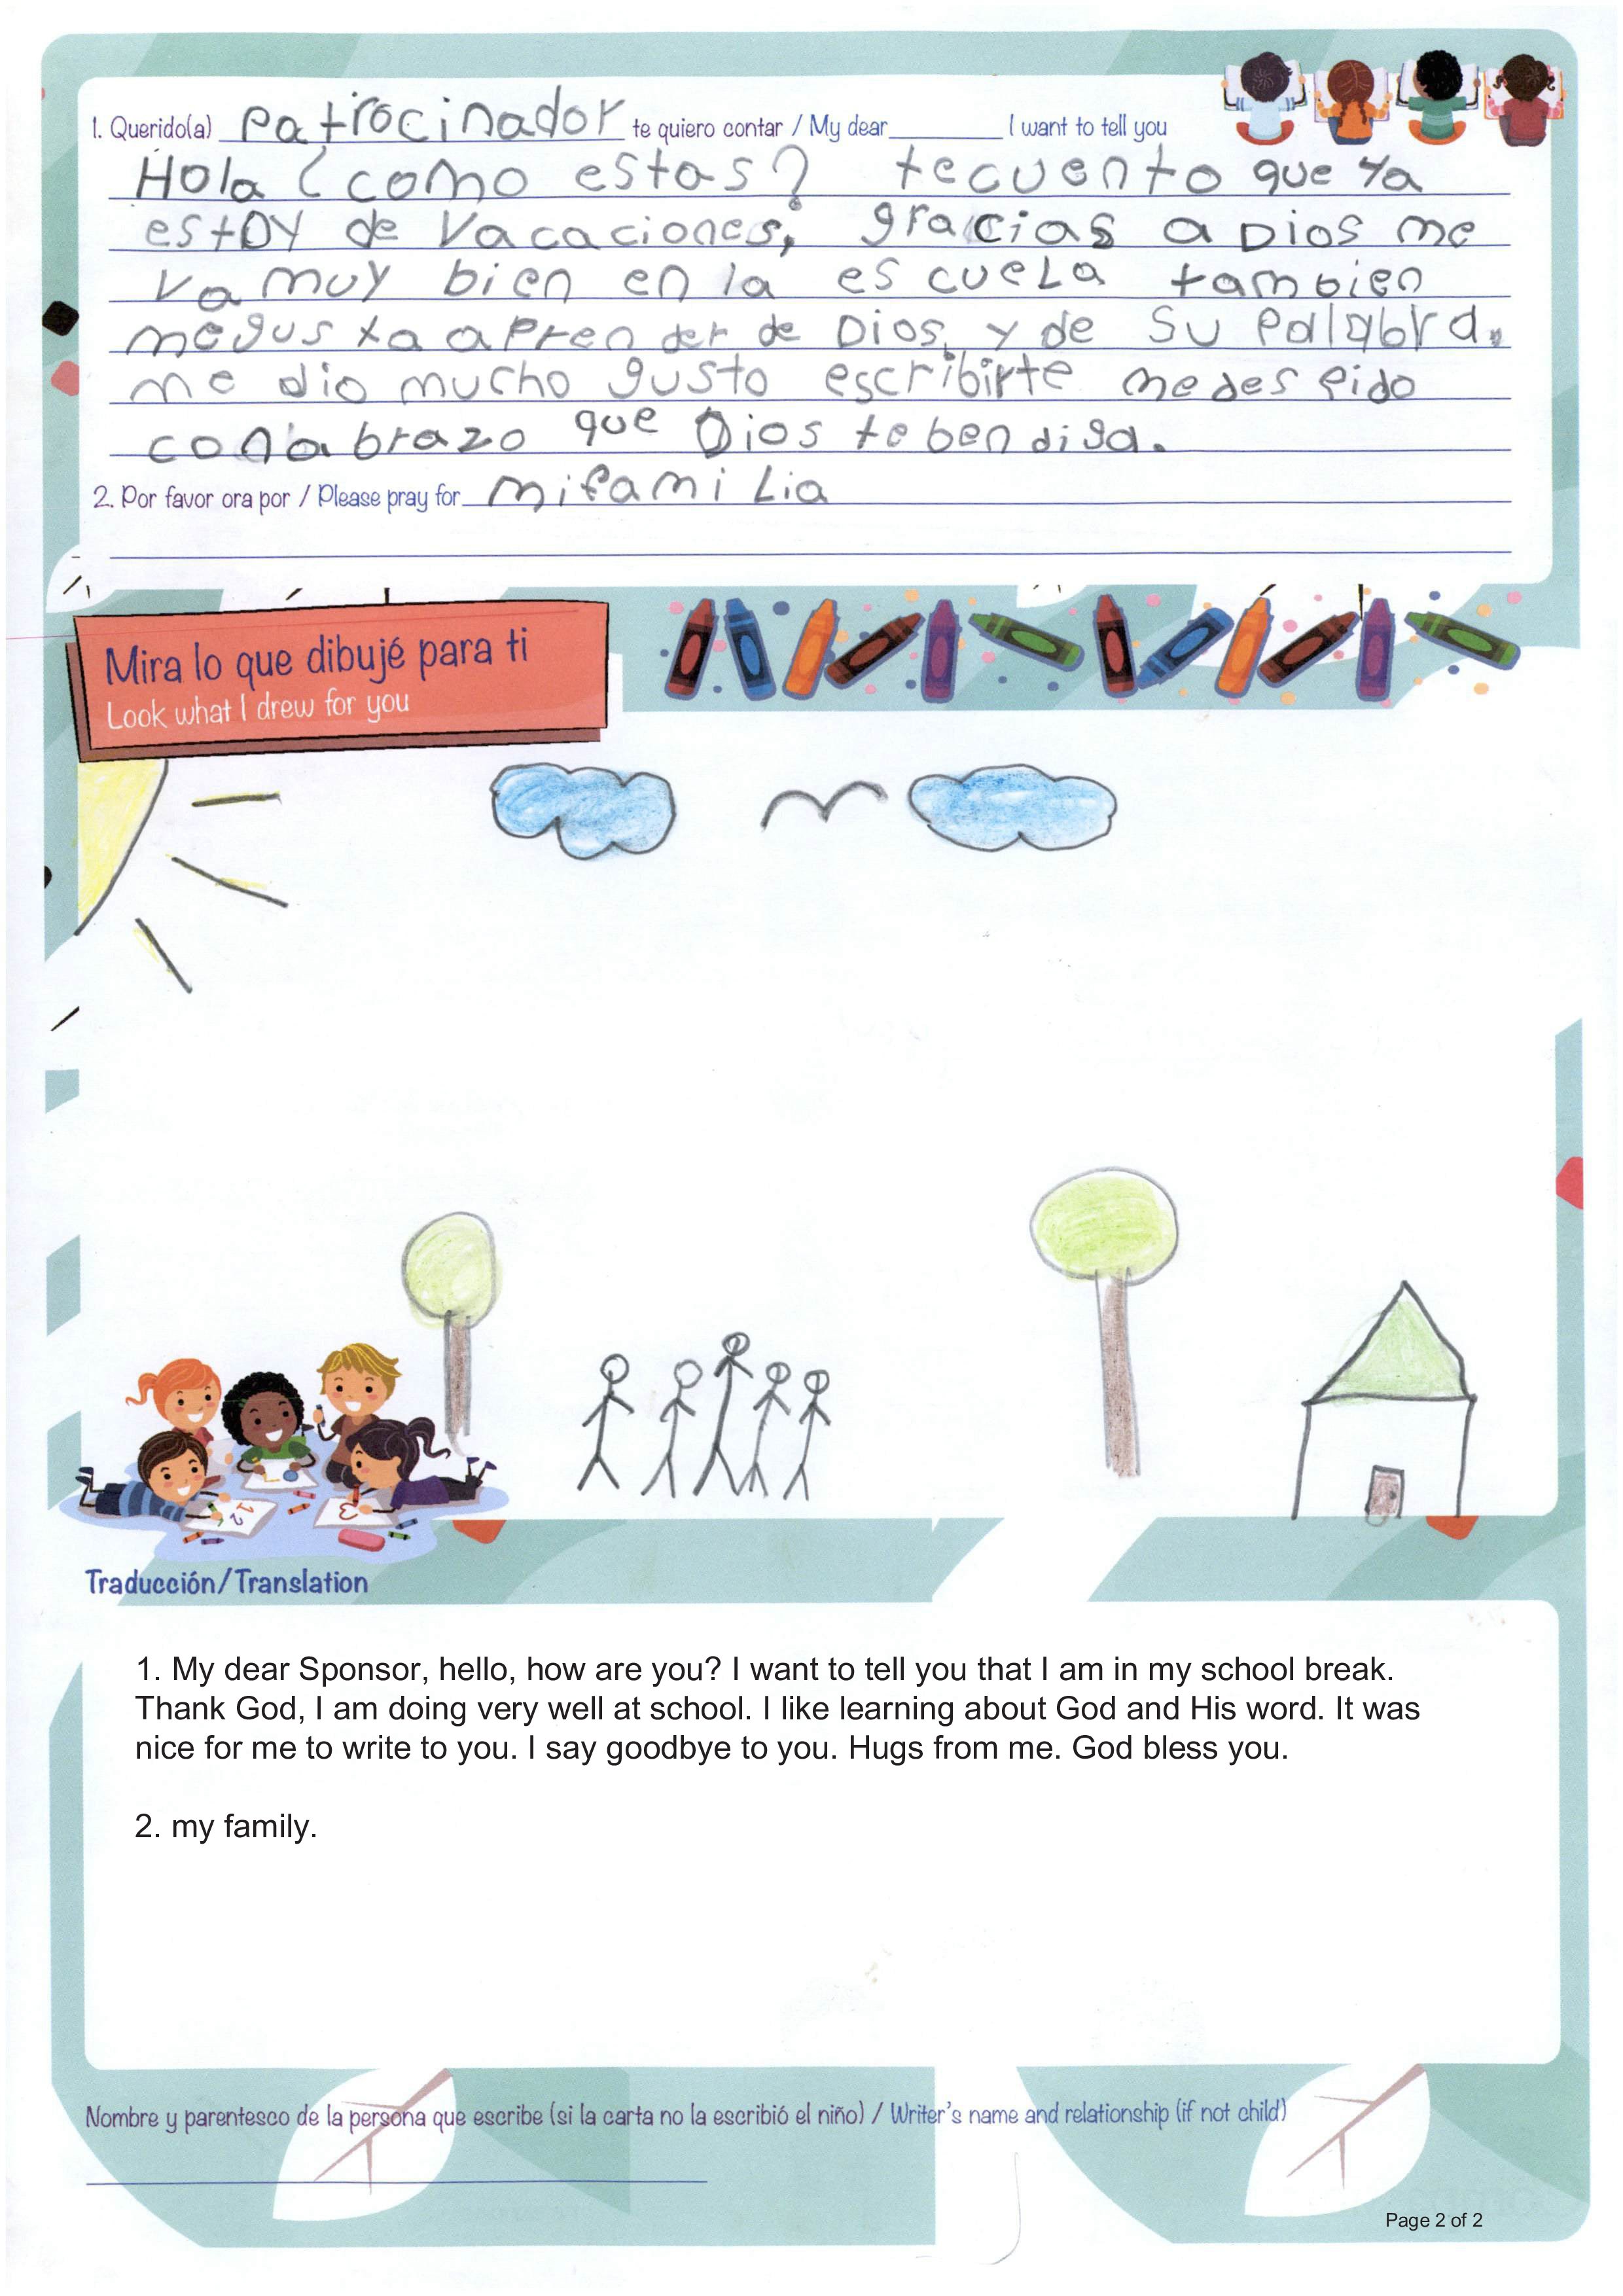 1. Querido(a) patrocinador te quiero contar / My dear________ I want to tell you
Hola ¿como estas? tecuento que ya
estoy de vacaciones, gracias a Dios me
va muy bien en la escuela tambien
megusta aprender de Dios, y de su palabra.
me dio mucho gusto escribirte me despido
con abrazo que Dios te bendiga.
2. Por favor ora por / Please pray for mi familia
Mira lo que dibujé para ti
Look what I drew for you
Traducción/Translation
1. My dear Sponsor, hello, how are you? I want to tell you that I am in my school break.
Thank God, I am doing very well at school. I like learning about God and His word. It was
nice for me to write to you. I say goodbye to you. Hugs from me. God bless you.
2. my family.
Nombre y parentesco de la persona que escribe (si la carta no la escribió el niño) / Writer's name and relationship (if not child)
Page 2 of 2